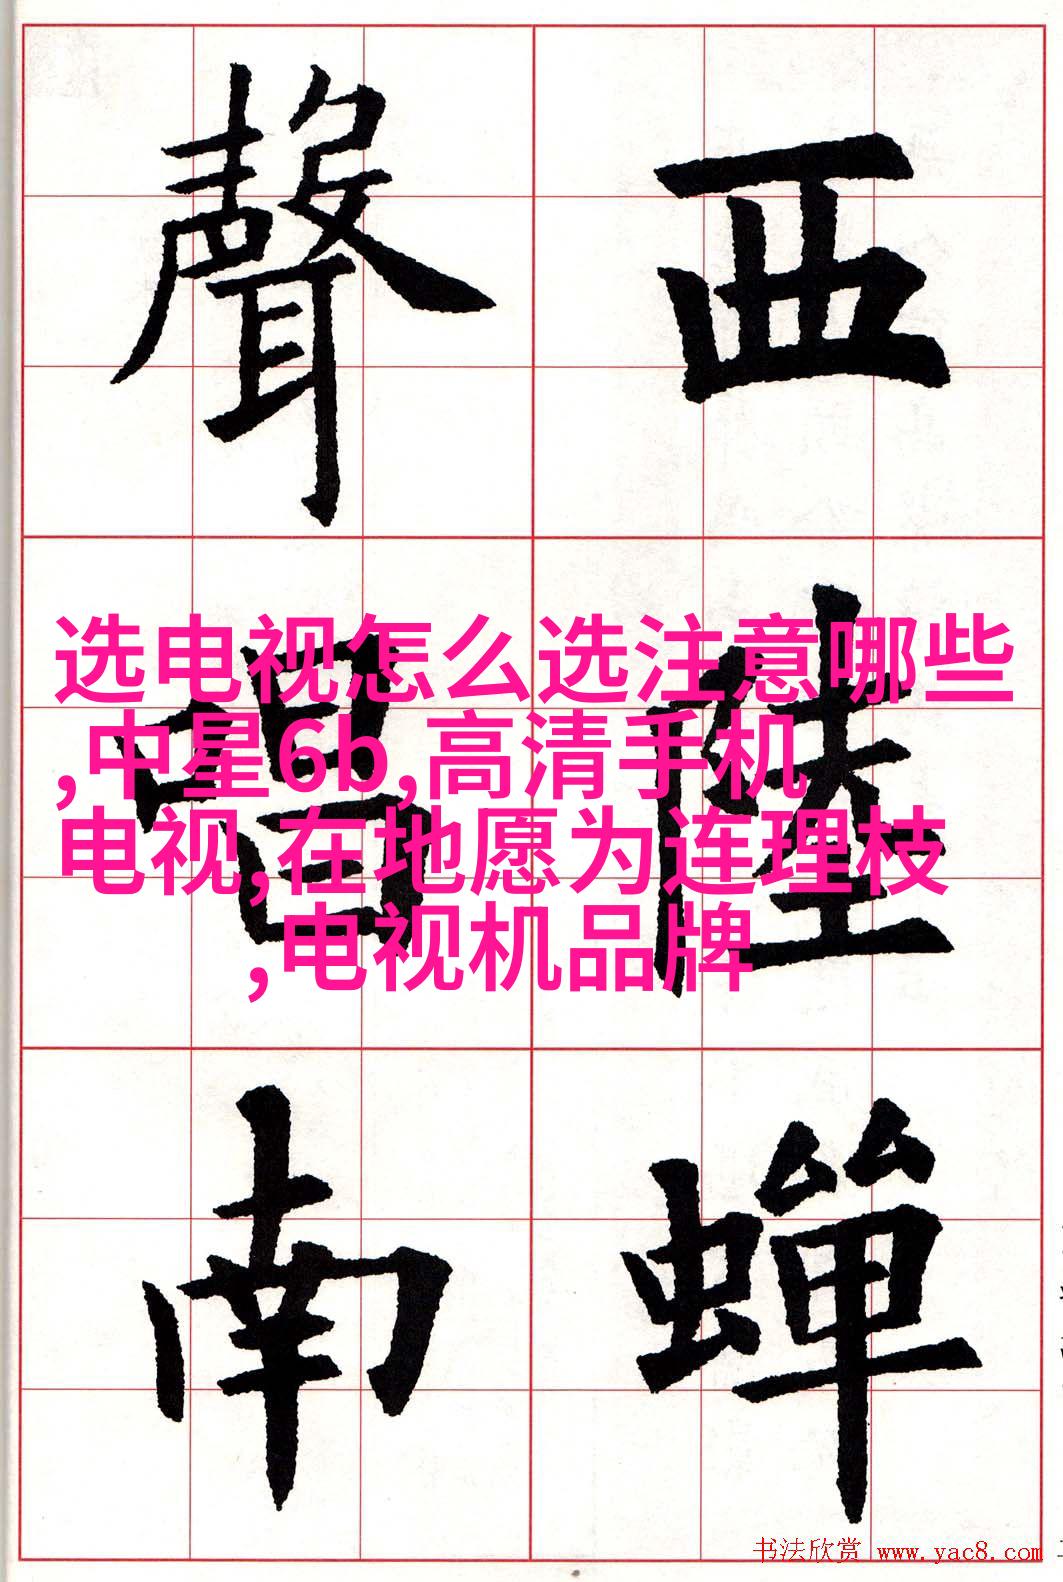 西陸蟬
聲唱南
选电视怎么选注意哪些
,中星6b,高清手机
电视,在地愿为连理枝
,电视机品牌
书法欣赏 www.yac8.com